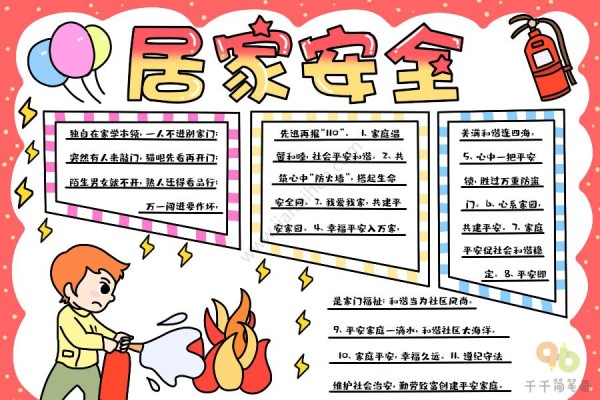 居家安全
独自在家学本领,一人不进别家门;
突然有人来敲门,猫眼先看再开门;
陌生男女就不开,熟人还得看品行;
万一闯进要作坏,
先逃再报"110"。 1、家庭温
馨和睦,社会平安和谐。2、共
筑心中"防火墙",搭起生命
安全网。3、我爱我家,共建平
安家园。4、幸福平安入万家,
美满和谐连四海。
5、心中一把平安
锁,胜过万重防盗
门。6、心系家园,
共建平安。7、家庭
平安促社会和谐稳
定。8、平安即
是家门福祉;和谐当为社区风尚。
9、平安家庭一滴水,和谐社区大海洋。
10、家庭平安,幸福久远。11、遵纪守法
维护社会治安,勤劳致富创建平安家庭。
千千简笔画